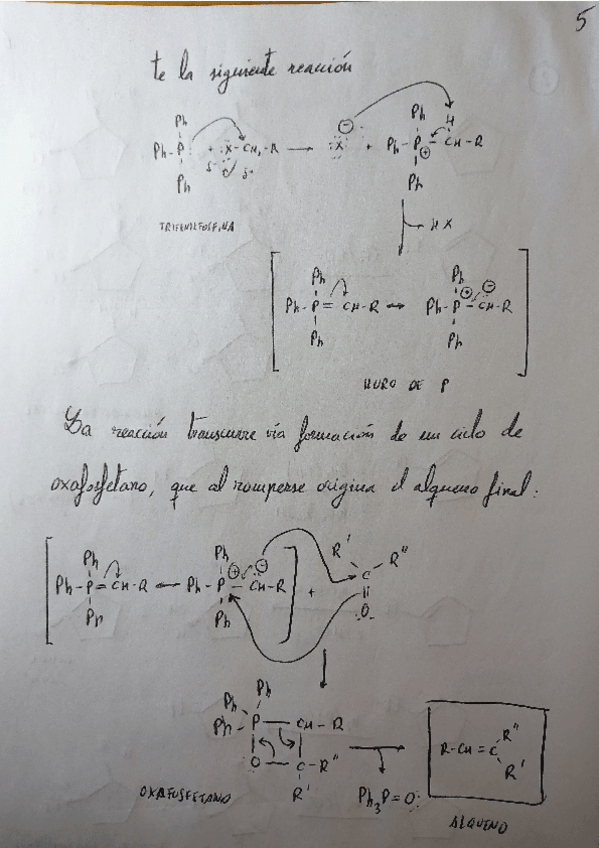 5
te la siguiente reacción
Ph Ph
Ph-P + :X-CH₂-R → :X: ⊖ + Ph-P⊕-CH-R
H
Ph δ- δ+ Ph
TRIFENILFOSFINA
HX
Ph Ph
Ph-P=CH-R ↔ Ph-P⊕-CH⊖-R
Ph Ph
ILURO DE P
La reacción transcurre vía formación de un ciclo de
oxafosfetano, que al romperse origina el alqueno final:
Ph Ph R' R''
Ph-P=CH-R ↔ Ph-P⊕-CH⊖-R + C
Ph Ph :O:
Ph Ph
Ph P-CH-R R-CH=C R'' R'
O-C-R''
R' Ph₃P=O:
OXAFOSFETANO
ALQUENO